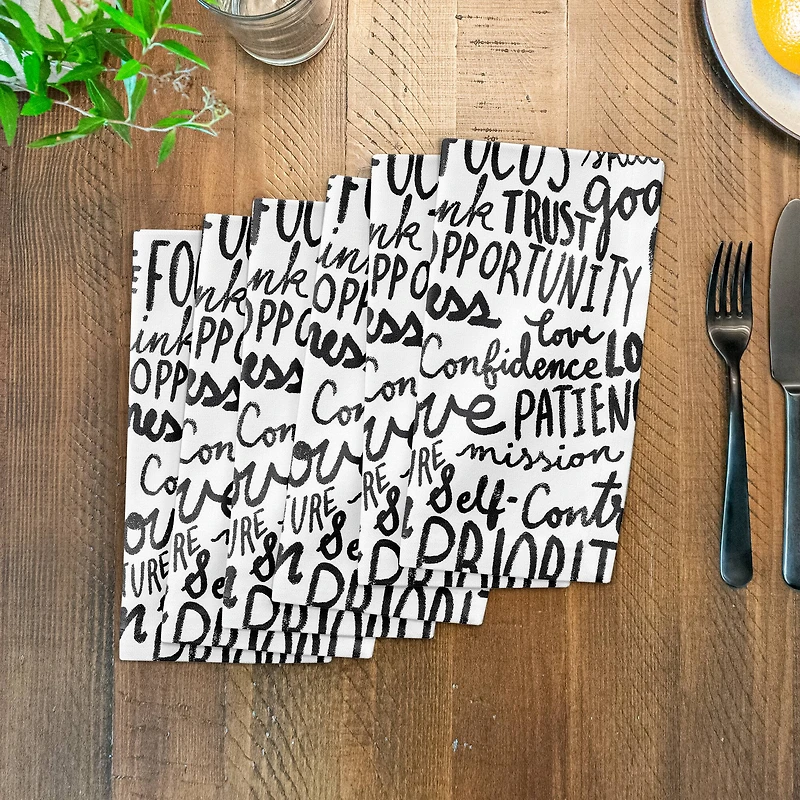 FOCUS
goo
ink TRUST
OPPORTUNITY
ess
love
Confidence LO
ve PATIEN
mission
URE
Self-Contr
PRIORIT